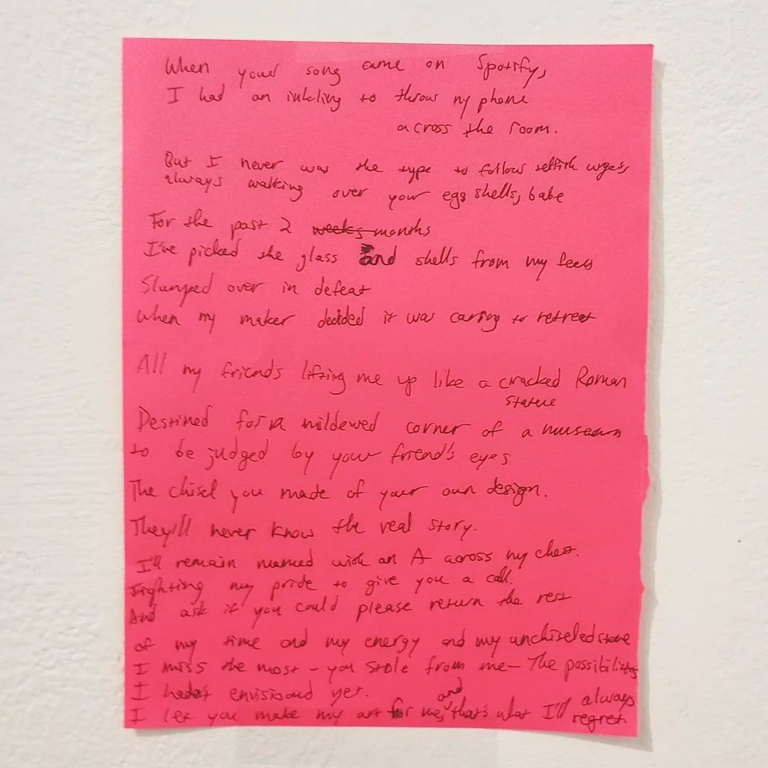 When your song came on Spotify,
I had an inkling to throw my phone
across the room.
But I never was the type to follow selfish urges,
always walking over your egg shells, babe
For the past 2 weeks months
I've picked the glass and shells from my feet
Slumped over in defeat
When my maker decided it was caring to retreat
All my friends lifting me up like a cracked Roman
statue
Destined for a mildewed corner of a museum
to be judged by your friend's eyes
The chisel you made of your own design.
They'll never know the real story.
I'll remain with an A across my chest.
Fighting my pride to give you a call.
And ask if you could please return the rest
of my time and my energy and my unchiseled stone
I miss the most – you stole from me – The possibilities
I hadn't envisioned yet.
I let you make my art for me, and that's what I'll always
regret